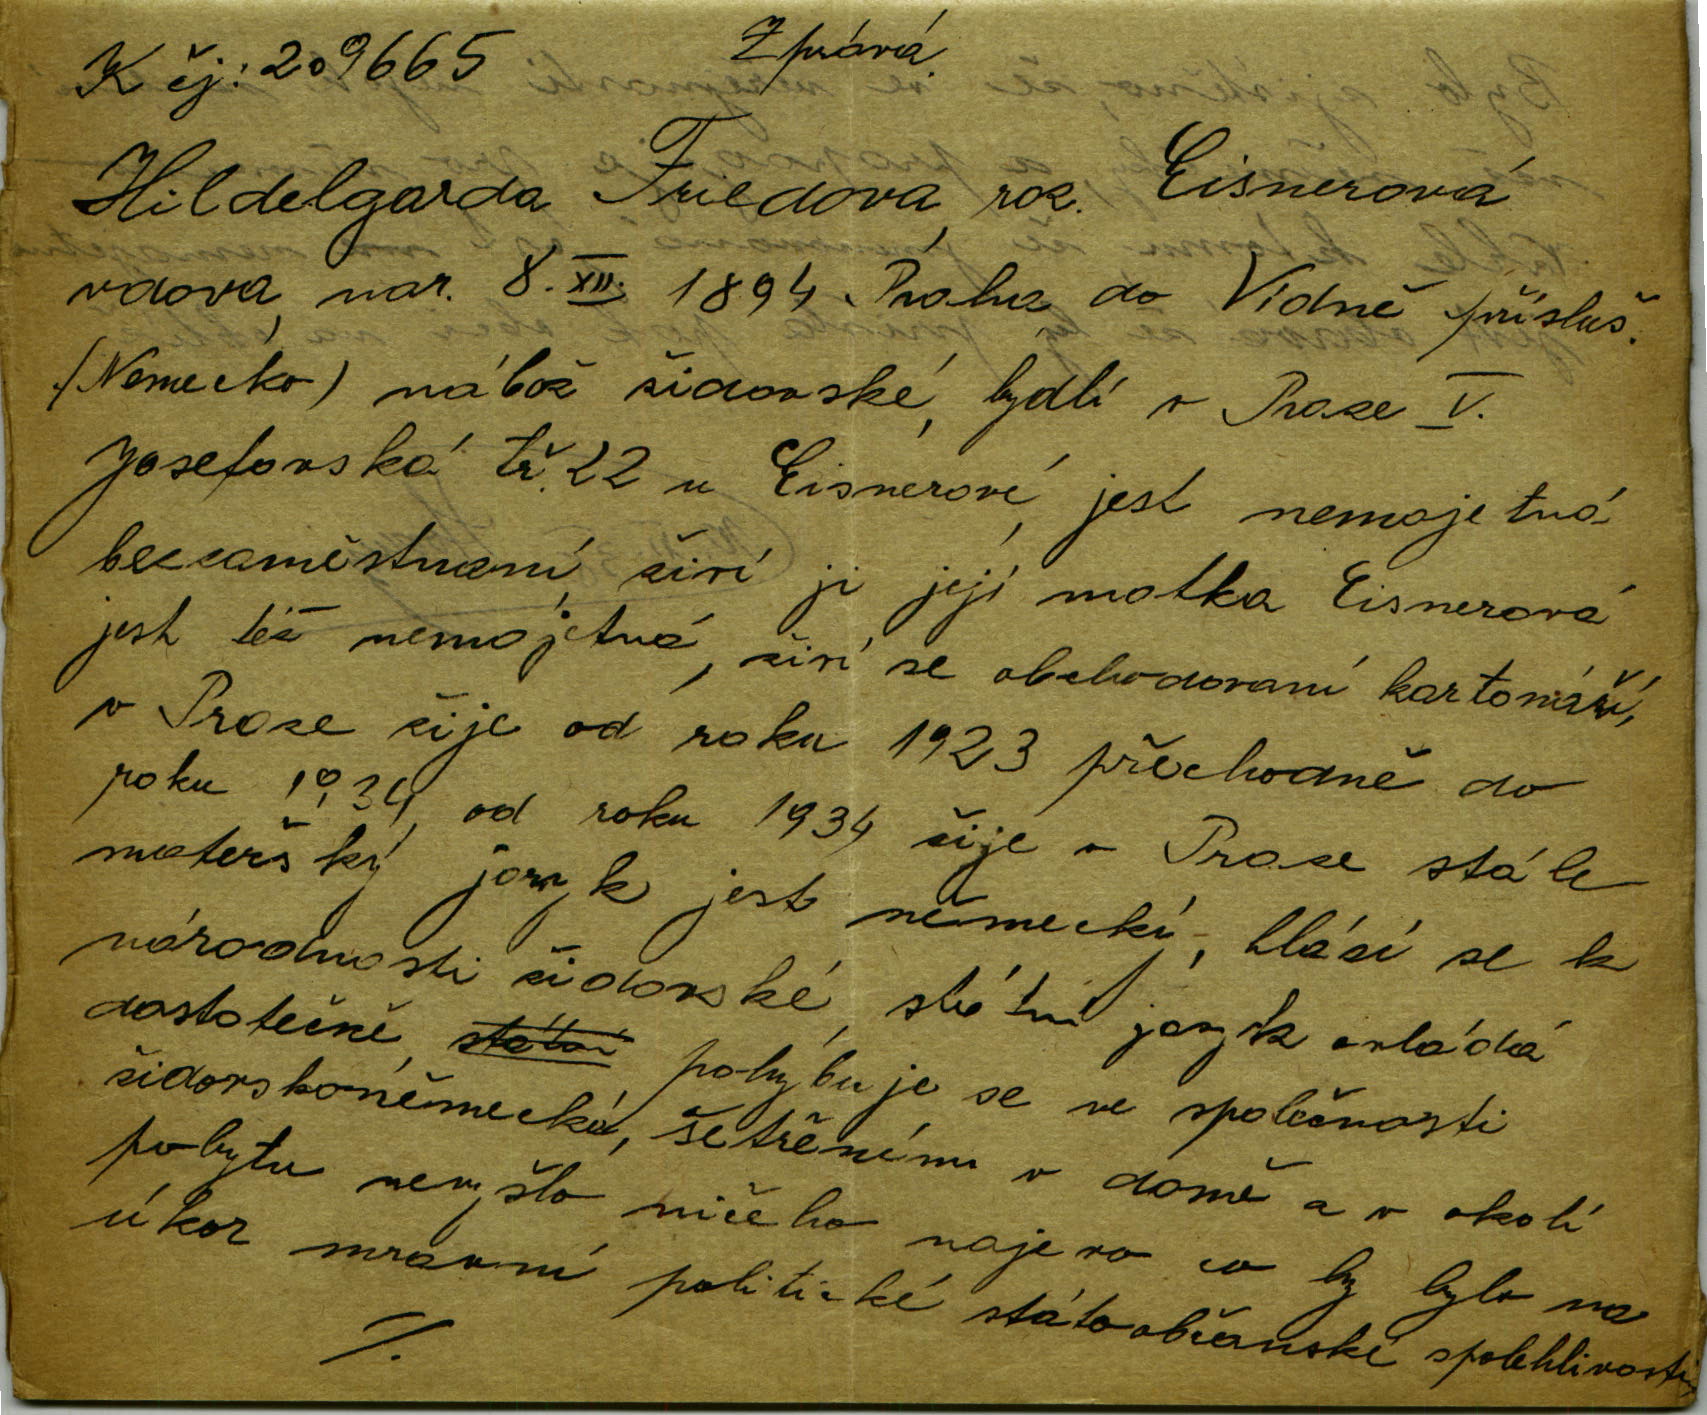 K čj: 209665 Zpráva.
Hildelgarda Friedova, roz. Eisnerová
vdova, nar. 8. XII. 1894 Praha do Vídně přísluš.
(Německo) nábož židovské, bydlí v Praze V.
Josefovská tř. 22 u Eisnerové, jest nemajetná
bezzaměstnaní, živí ji její matka Eisnerová
jest též nemajetná, živí se obchodovaní kartonáží,
v Praze žije od roku 1923 přechodně do
roku 1934, od roku 1934 žije v Praze stále
mateřský jazyk jest německý, hlásí se k
národnosti židovské, státní jazyk ovládá
dostatečně, státní pohybuje se ve společnosti
židovskoněmecké, šetřením v domě a v okolí
pobytu nevyšlo ničeho najevo co by bylo na
úkor mravní politické státoobčanské spolehlivosti,
./.